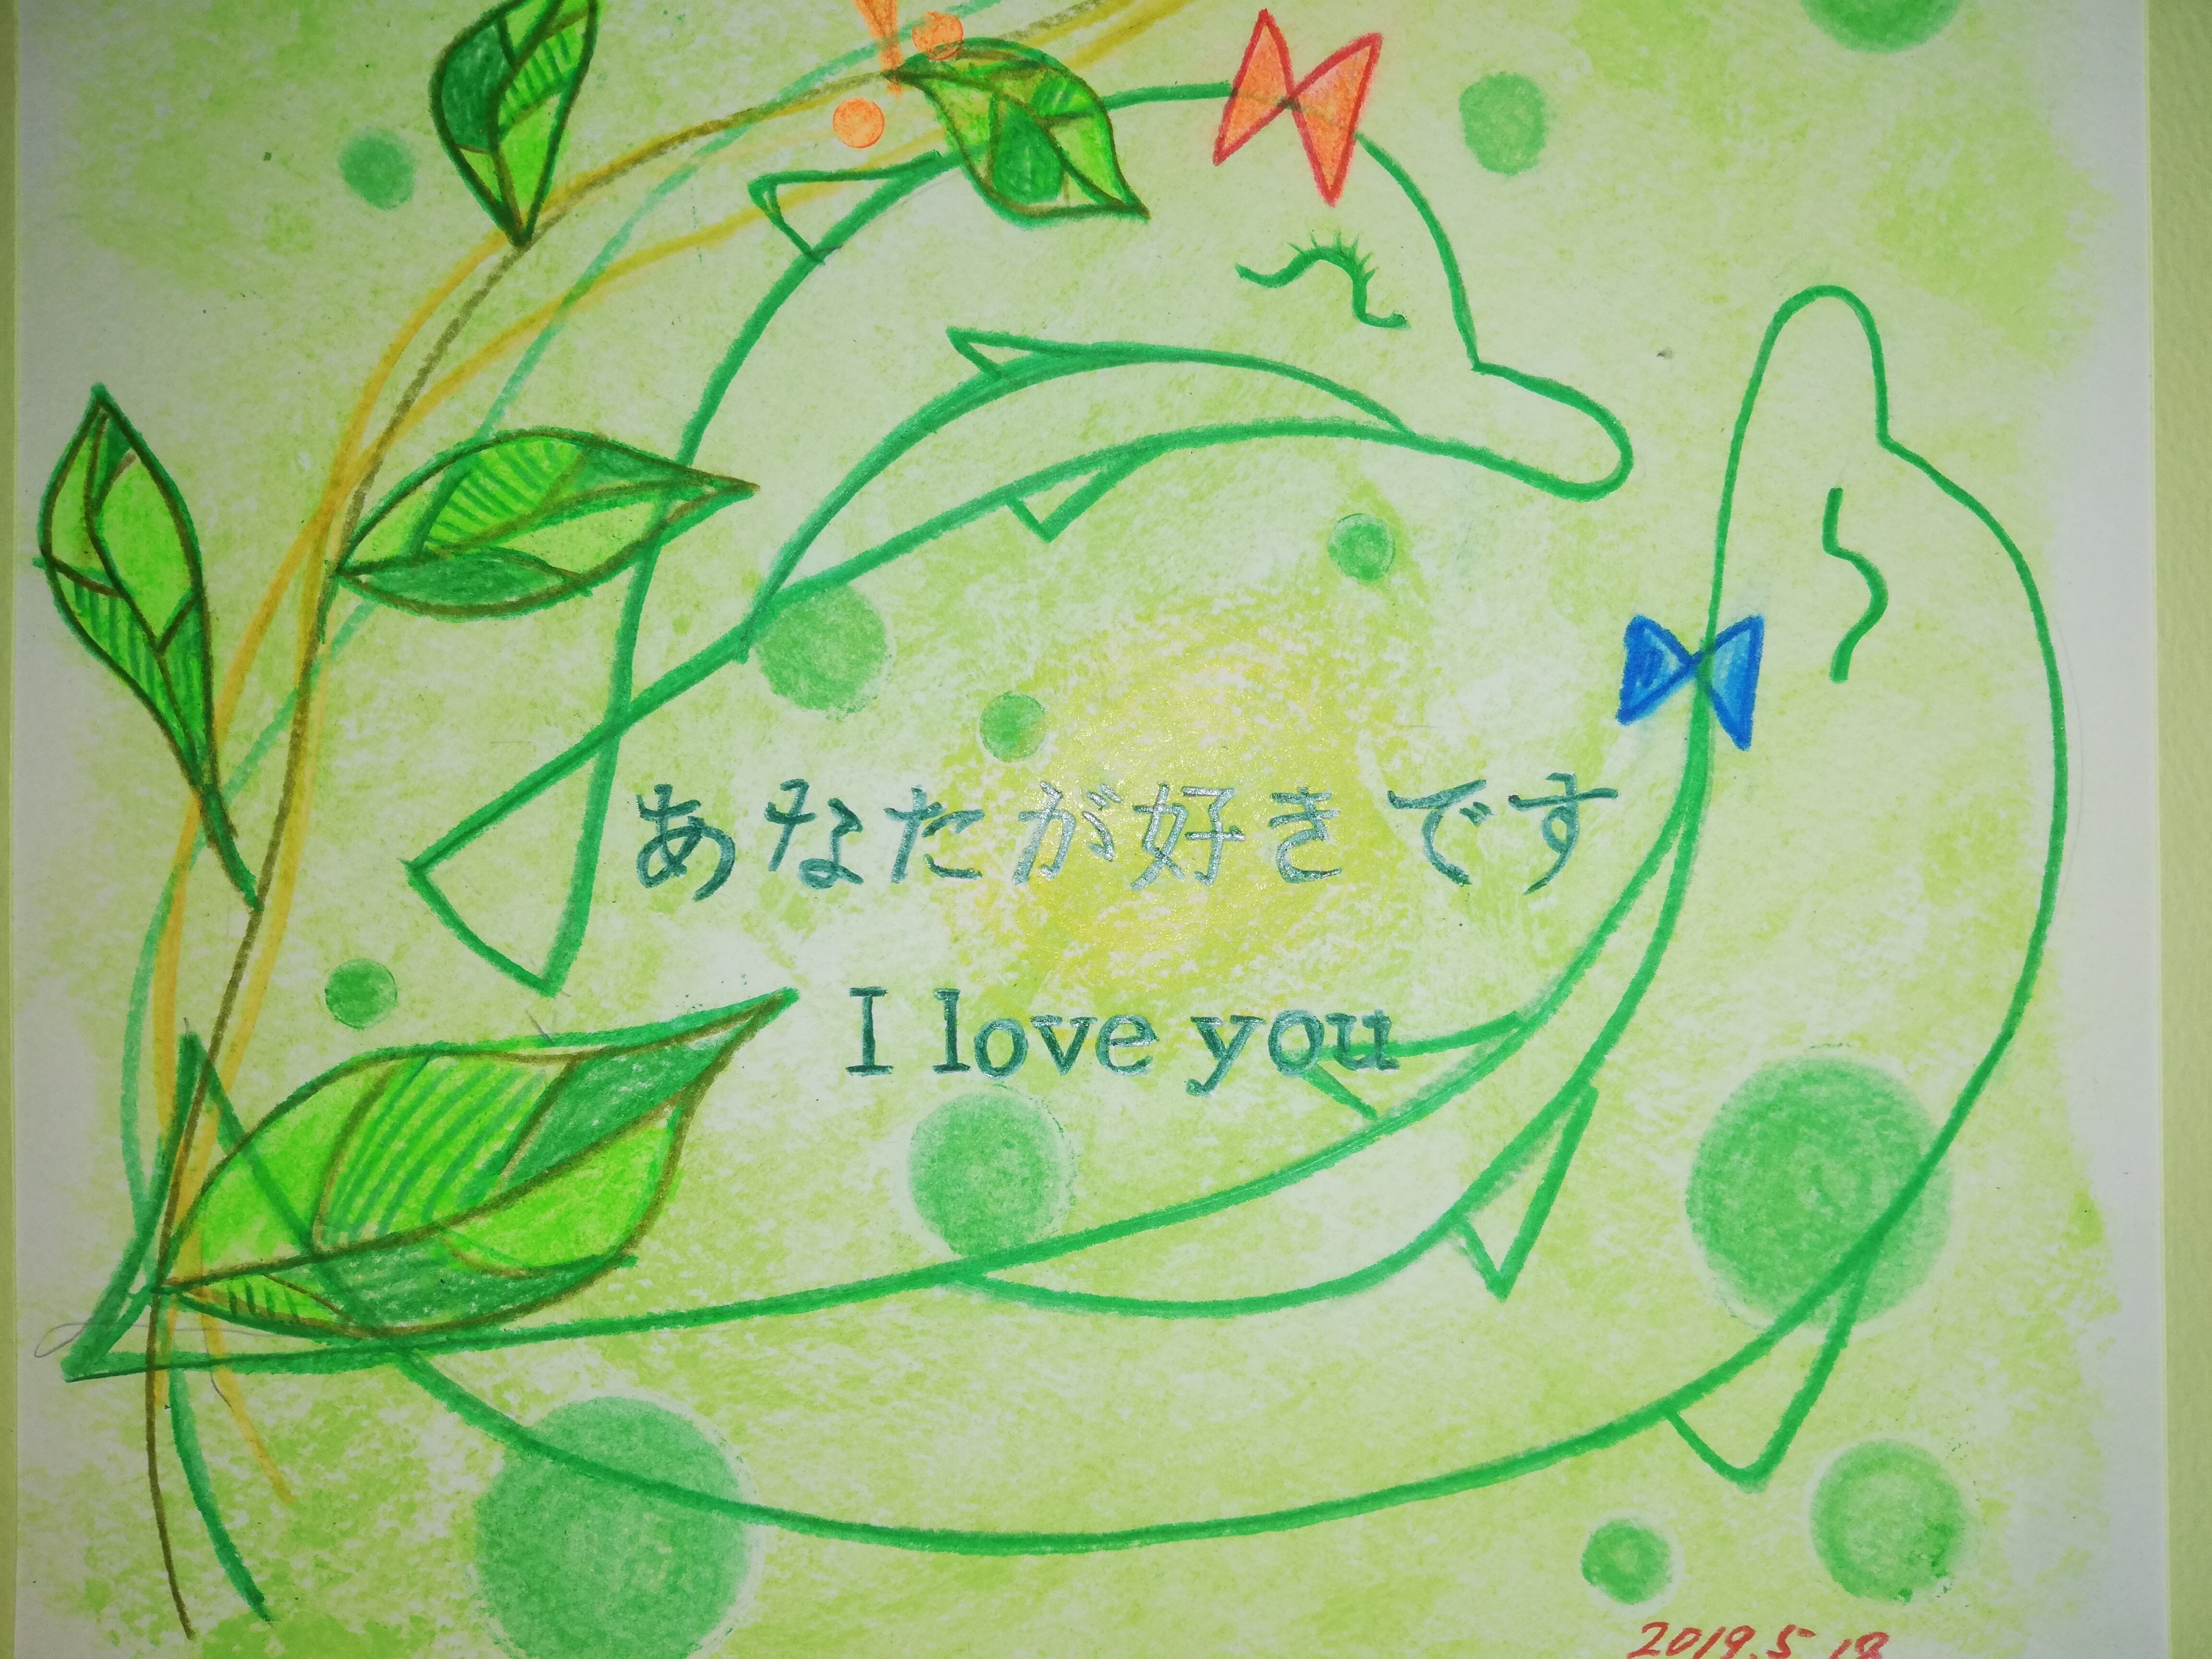 あなたが好きです
I love you
2019.5.18